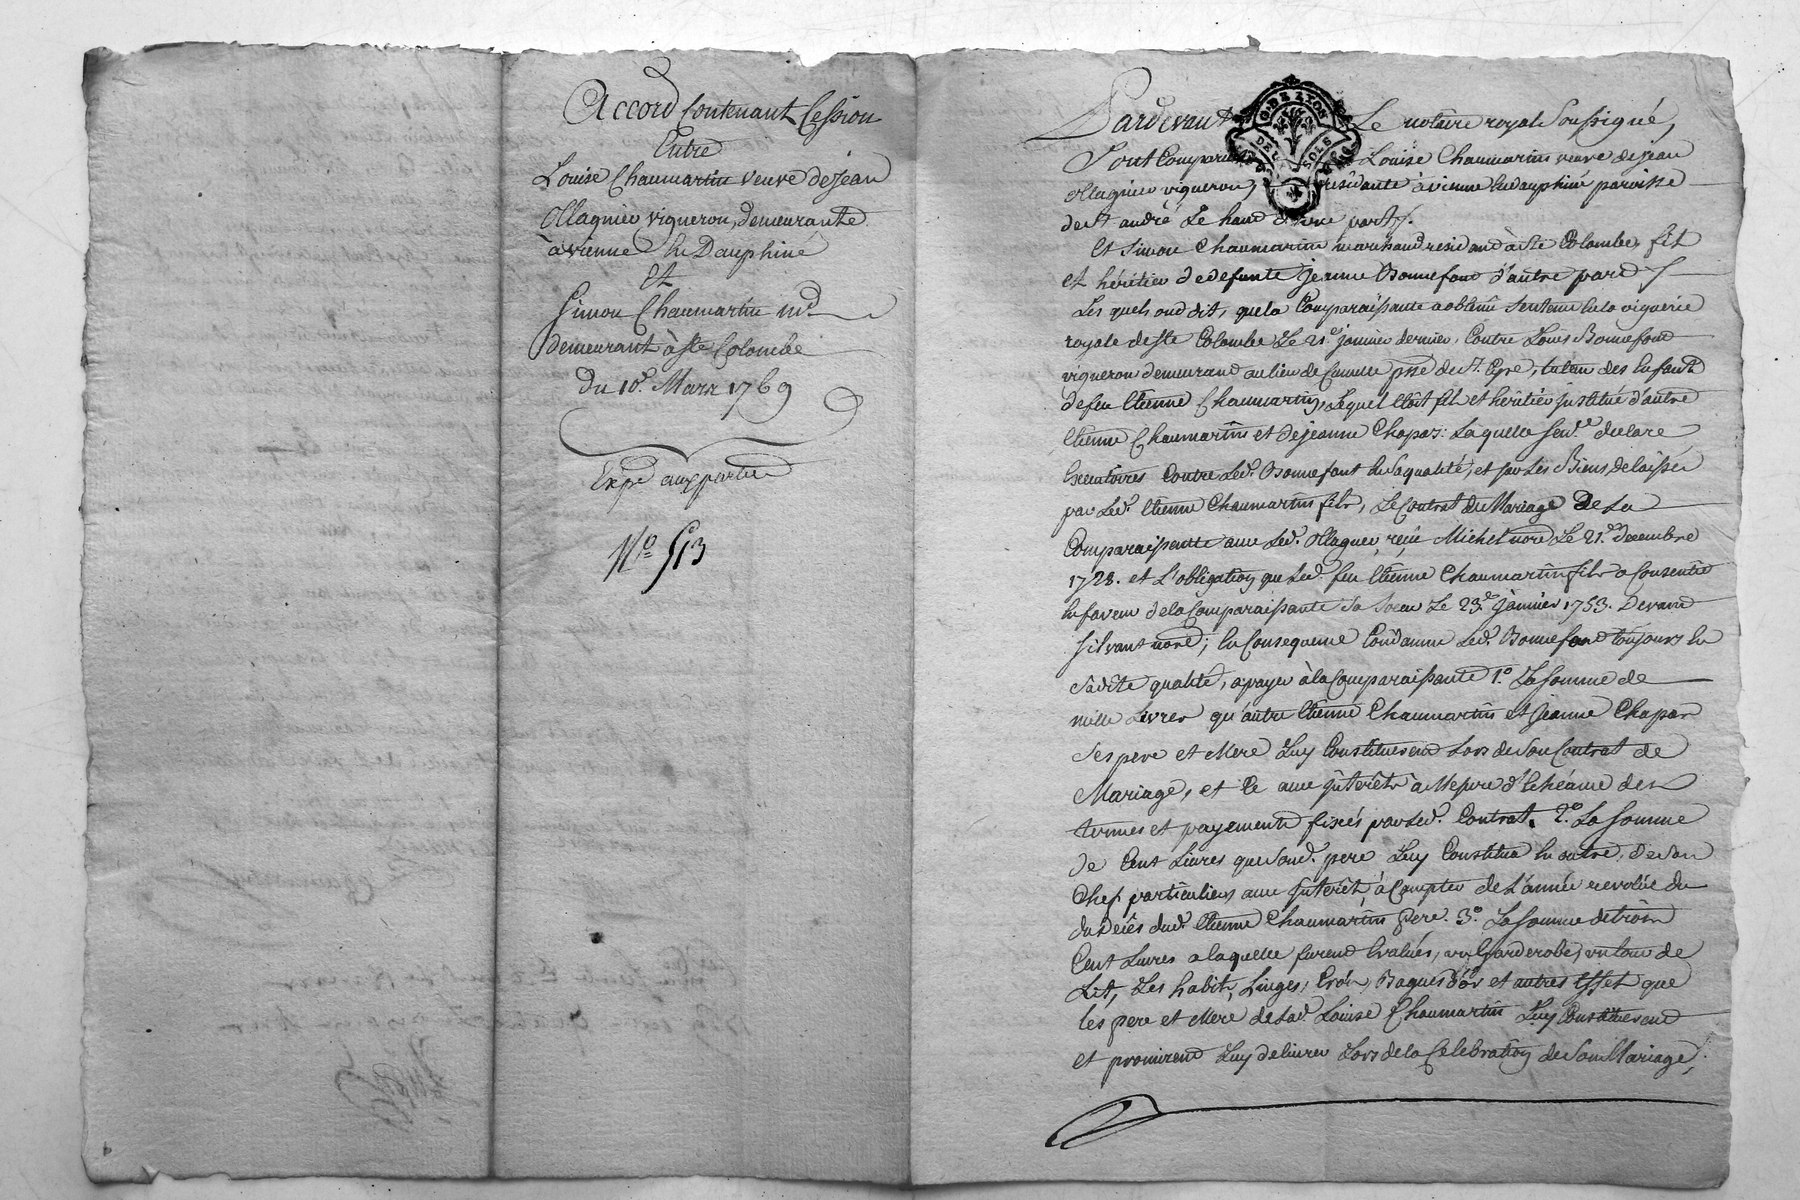 Accord Contenant Cession
Entre
Louise Chaumartin veuve de jean
Ollagnier vigneron, demeurante
à vienne En Dauphiné
Et
Simon Chaumartin md
demeurant à ste Colombe
Du 10e Mars 1769
Expé aux parties
No 513
Pardevant Le notaire royal Soussigné,
Sont Comparus Louise Chaumartin veuve de jean
Ollagnier vigneron, residante à vienne En dauphiné paroisse
de st andré Le haut d'une part.
Et Simon Chaumartin marchand residant à ste Colombe, fil
et héritier de defunte jeanne Bonnefont d'autre part
Les quels ont dit, que la Comparaissante a obtenu Sentence En la viguerie
royale de ste Colombe Le 21e janvier dernier, Contre Louis Bonnefont
vigneron demeurant au lieu de psse de st Cyre, tuteur des Enfants
de feu Etienne Chaumartin, Lequel Etoit fils et héritier institué d'autre
Etienne Chaumartin et de jeanne Chapas: Laquelle Sence declare
Executoires Contre Led. Bonnefont En Sa qualité, et Sur Les Biens delaissés
par Led. Etienne Chaumartin fils, Le Contrat de Mariage De La
Comparaissante avec Led. Ollagnier, reçu Michel nore Le 21e decembre
1728. et L'obligation que Led. feu Etienne Chaumartin fils a Consentie
En faveur de la Comparaissante Sa Soeur Le 23e janvier 1753. Devant
Silvant nore; En Consequence Condamne Led. Bonnefont toujours En
Sadite qualité, a payer à la Comparaissante 1o. La Somme de
mille Livres qu'autre Etienne Chaumartin et Jeanne Chapas
Ses pere et Mere Luy Constituerent Lors de Son Contrat de
Mariage, et Ce avec interêts à Mesure d'Echéance des
termes et payements fixés par Led. Contrat. 2o. La Somme
de Cent Livres que Sond. pere Luy Constitua En outre, de Son
Chef particulier avec interêt, à Compter de L'année revolüe du
du décès dud. Etienne Chaumartin pere. 3o. La Somme de trois
Cent Livres a laquelle furent Evalués, un garderobe, un tour de
Lit, Les habits, Linges, Croix, Bagues d'or et autres Effet que
les pere et Mere de Lad. Louise Chaumartin Luy Constituerent
et promirent Luy delivrer Lors de la Celebration de Son Mariage,